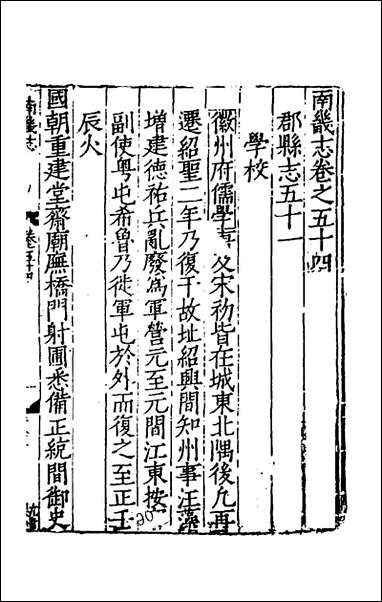 南畿志卷之五十四
郡縣志五十一
學校
徽州府儒學 宋初皆在城東北隅後凡再
遷紹聖二年乃復于故址紹興間知州事汪藻
增建德祐兵亂廢為軍營元至元間江東按
副使粤屯希魯乃徙軍屯於外而復之至正壬
辰火
國朝重建堂齋廟廡橋門射圃悉備正統間御史
南畿志
卷五十四